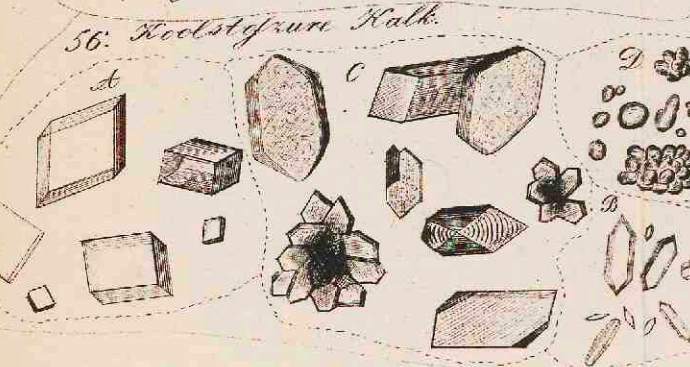 56. Koolstofzure Kalk.
A
C
D
B